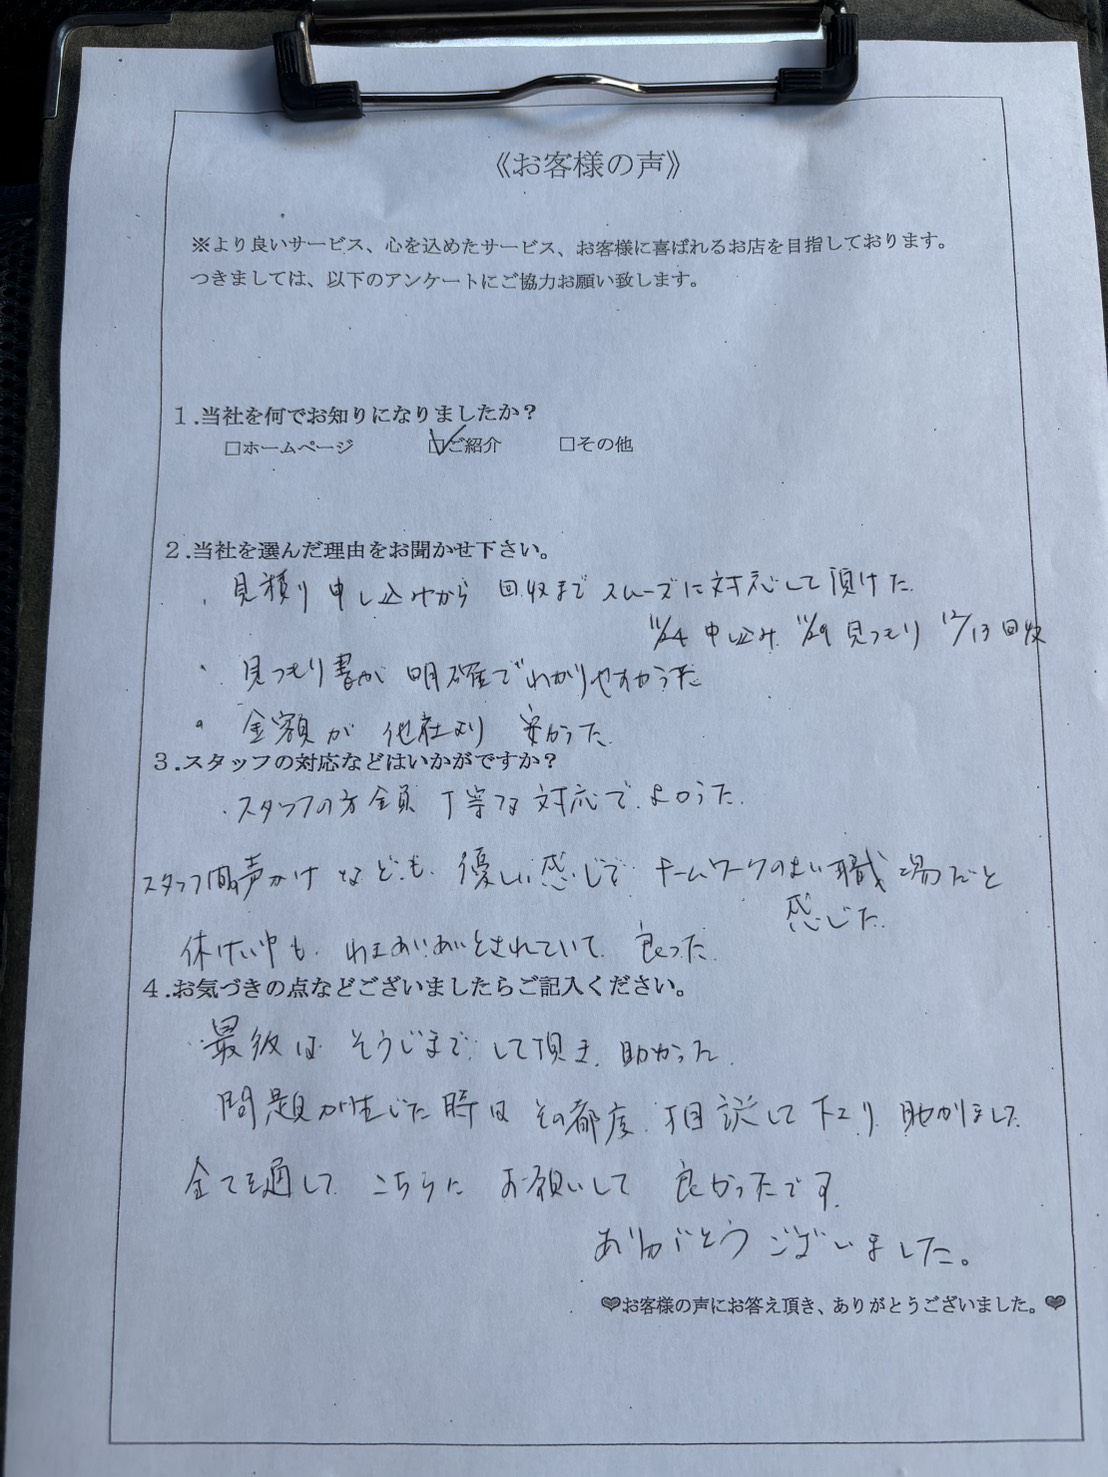 《お客様の声》
※より良いサービス、心を込めたサービス、お客様に喜ばれるお店を目指しております。
つきましては、以下のアンケートにご協力お願い致します。
1.当社を何でお知りになりましたか？
□ホームページ ☑ご紹介 □その他
2.当社を選んだ理由をお聞かせ下さい。
・見積り申し込みから 回収まで スムーズに対応して頂けた
11/24 申し込み 11/29 見つもり 12/13 回収
・見つもり書が 明確でわかりやすかった
・金額が 他社より 安かった
3.スタッフの対応などはいかがですか？
・スタッフの方全員 丁寧な対応で よかった
スタッフ間の声かけ なども 優しい感じで チームワークのよい職場だと
感じた
休けい中も わきあいあいとされていて 良かった
4.お気づきの点などございましたらご記入ください。
・最後は そうじまで して頂き 助かった
問題が生じた時は その都度 相談して下さり 助かりました
全てを通して こちらに お願いして 良かったです
ありがとうございました。
♥お客様の声にお答え頂き、ありがとうございました。♥